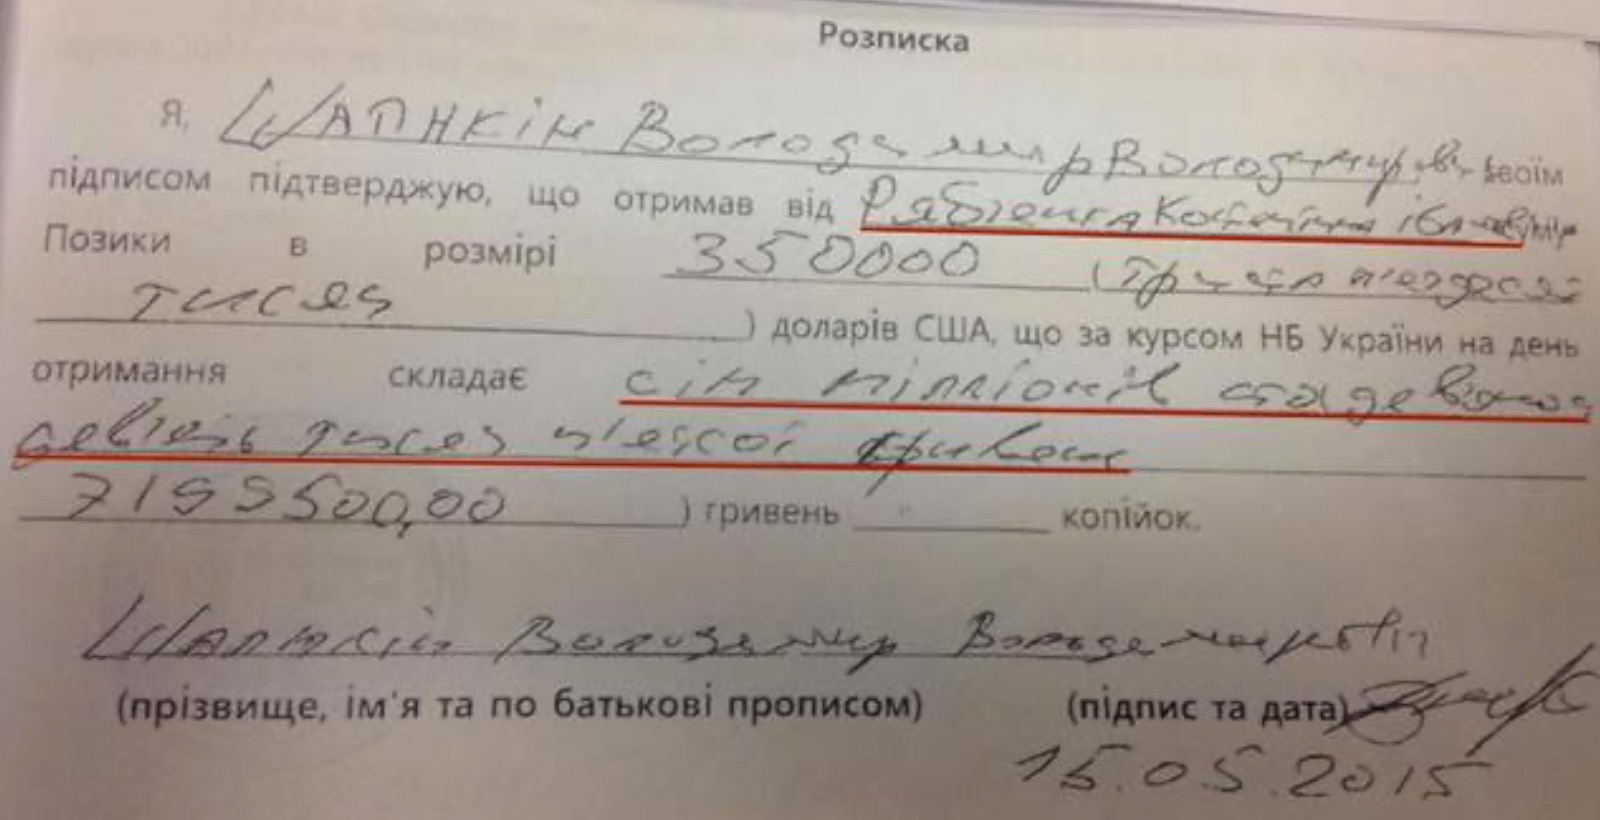 Розписка
Я, Шапкін Володимир Володимирович своїм
підписом підтверджую, що отримав від Рябченка
Позики в розмірі 350000 (Триста п'ятдесят
тисяч ) доларів США, що за курсом НБ України на день
отримання складає сім мілліонів сто девяносто
девять тисяч п'ятсот гривень
7199500,00 ) гривень копійок.
Володимир Володимирович
(прізвище, ім'я та по батькові прописом) (підпис та дата)
15.05.2015